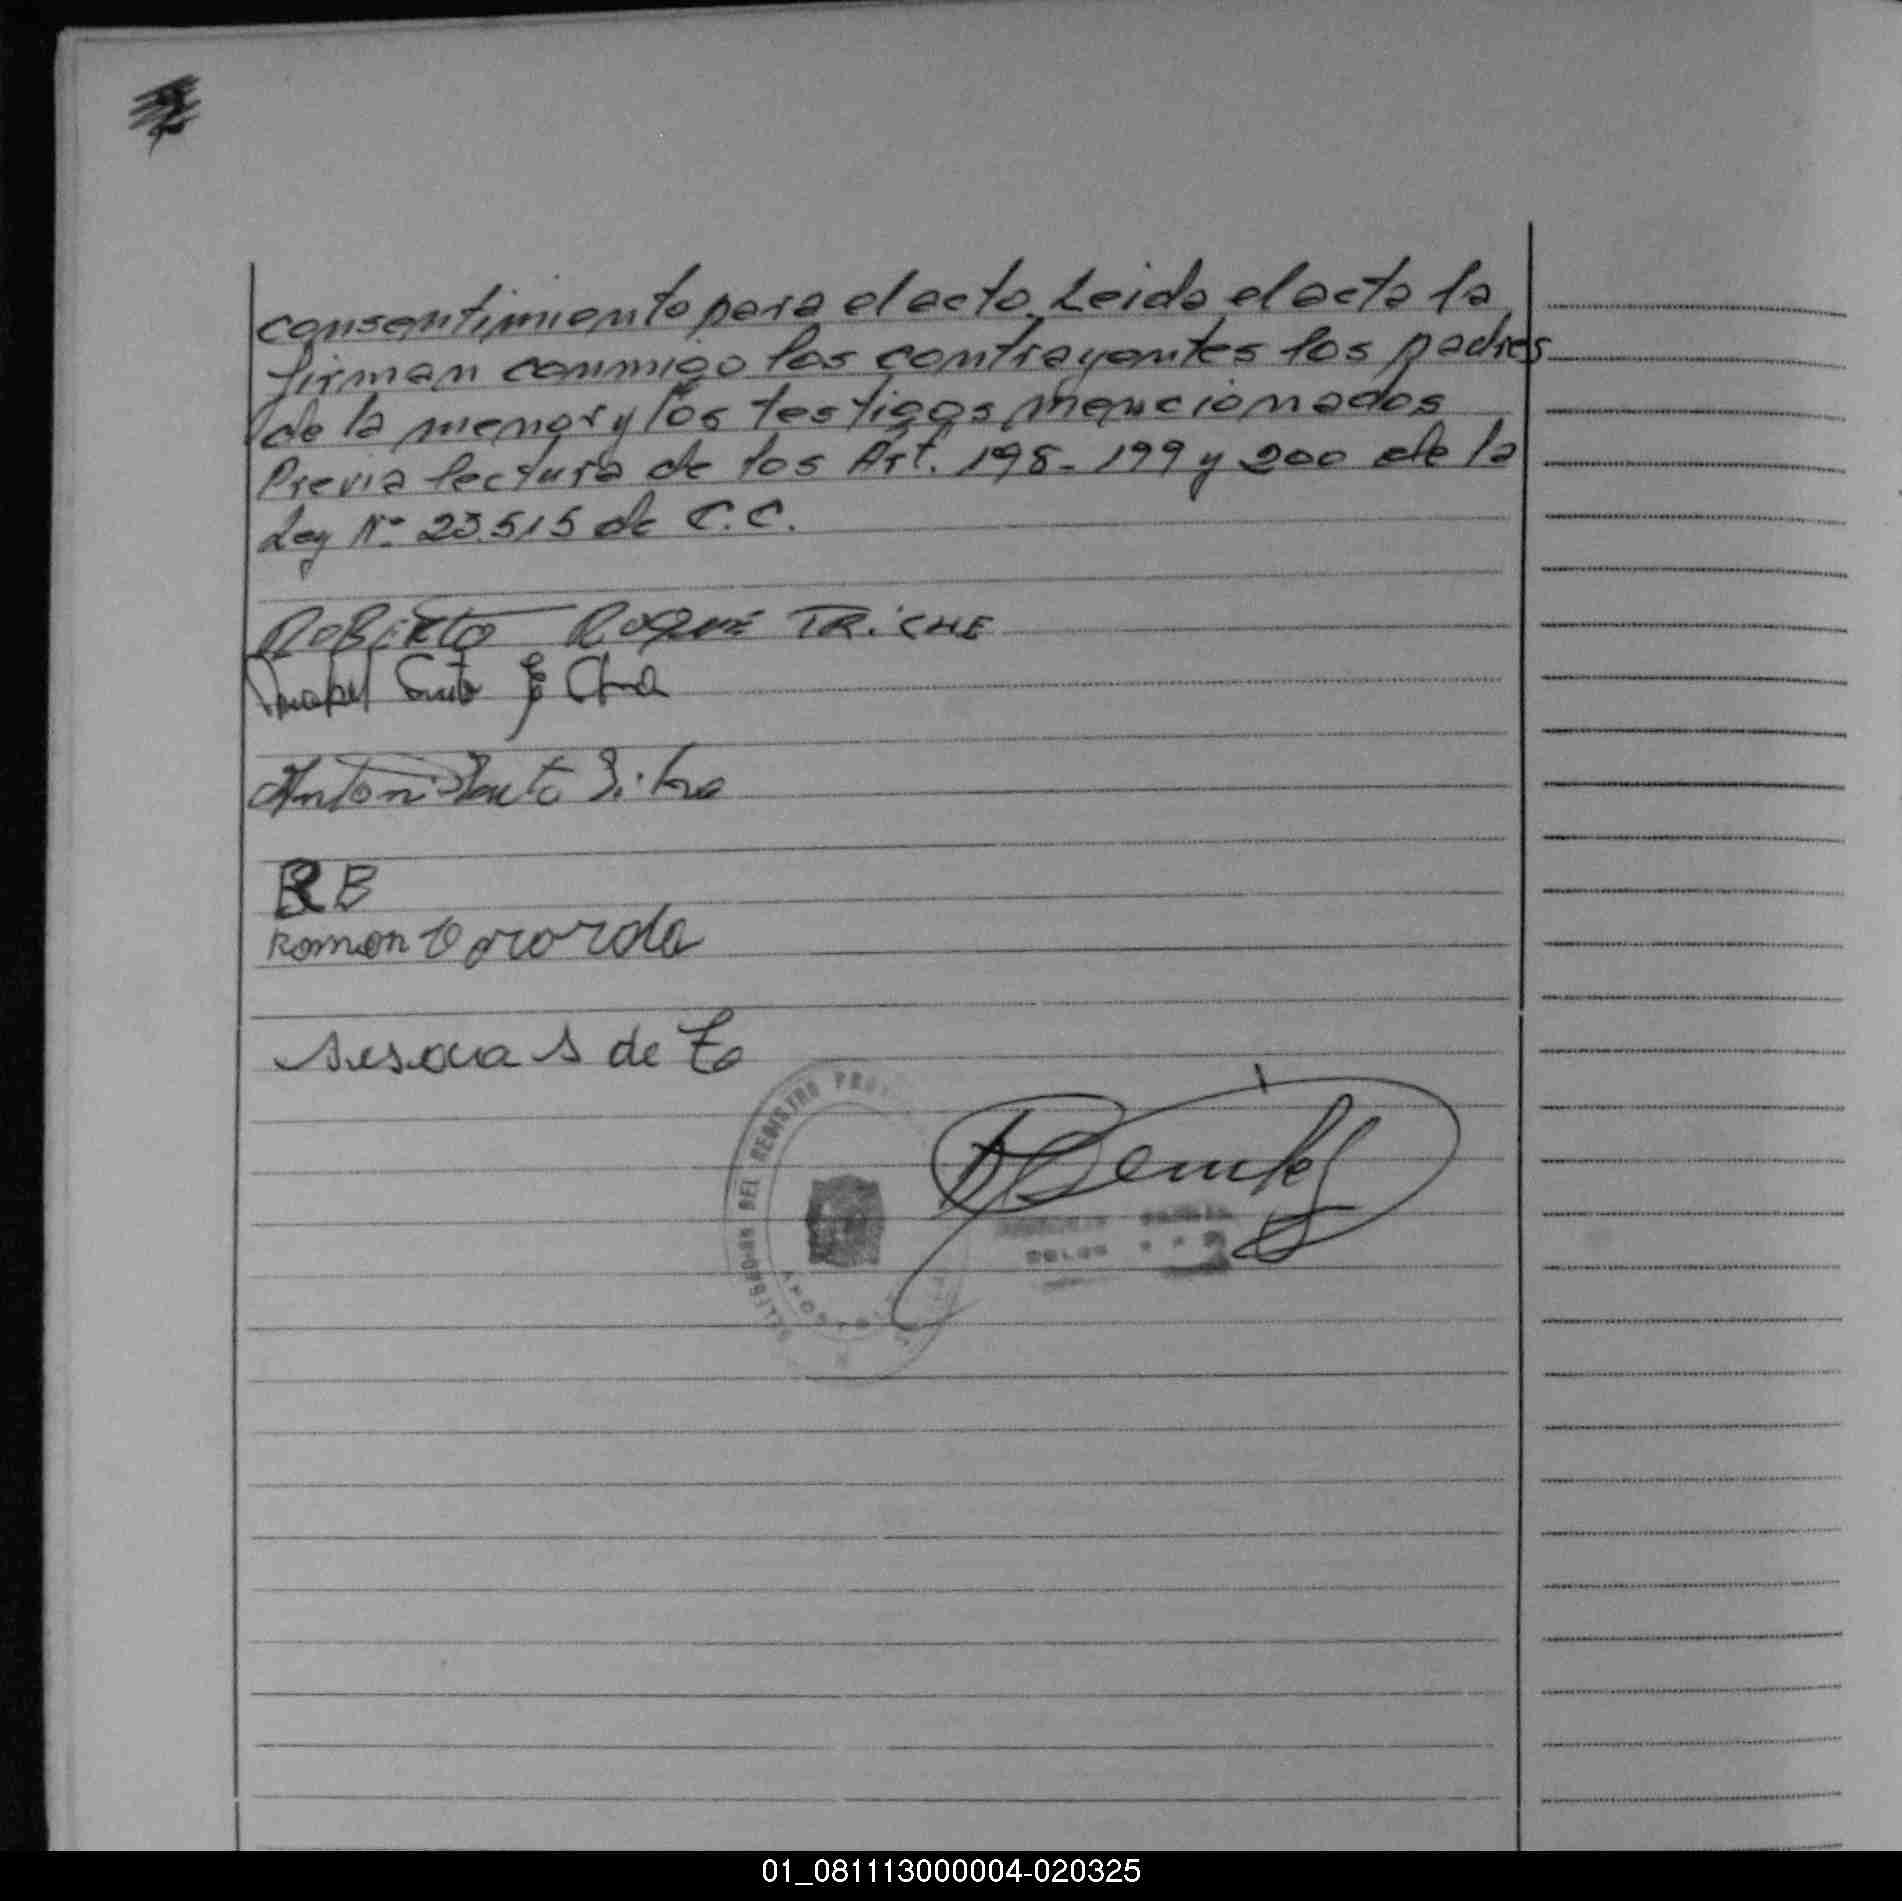 consentimiento para el acto. Leida el acta la
firman conmigo los contrayentes los padres
de la menor y los testigos mencionados
Previa lectura de los Art. 198- 199 y 200 de la
Ley Nº 23.515 de C.C.
Roberto Roque TRiCHE
Antoni Silva
RB
Ramon
de
DEL REGISTRO
01_081113000004-020325